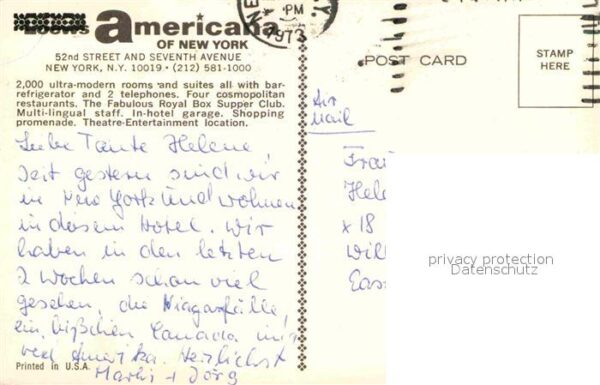 americana
OF NEW YORK
52nd STREET AND SEVENTH AVENUE
NEW YORK, N.Y. 10019 • (212) 581-1000
2,000 ultra-modern rooms and suites all with bar-
refrigerator and 2 telephones. Four cosmopolitan
restaurants. The Fabulous Royal Box Supper Club.
Multi-lingual staff. In-hotel garage. Shopping
promenade. Theatre-Entertainment location.
Liebe Tante Helene
Seit gestern sind wir
in New York und wohnen
in diesem Hotel. Wir
haben in den letzten
2 Wochen schon viel
gesehen, die Niagarafälle,
ein bißchen Canada und
viel Amerika. Herzlichst
+ Jörg
Printed in U.S.A.
PM
1973
POST CARD
STAMP
HERE
Air
Mail
Frau
Hele
x 18
Will
privacy protection
Datenschutz